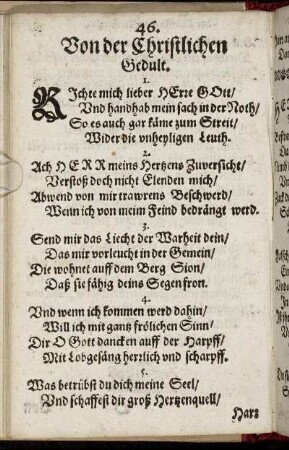 46.
Von der Christlichen
Gedult.
1.
RIchte mich lieber HErre GOtt/
Vnd handhab mein sach in der Noth/
So es auch gar käme zum Streit/
Wider die vnheyligen Leuth.
2.
Ach HERR meins Hertzens Zuversicht/
Verstoß doch nicht Elenden mich/
Abwend von mir trawrens Beschwerd/
Wenn ich von meim Feind bedrängt werd.
3.
Send mir das Liecht der Warheit dein/
Das mir vorleucht in der Gemein/
Die wohnet auff dem Berg Sion/
Daß sie fähig deins Segen fron.
4.
Vnd wenn ich kommen werd dahin/
Will ich mit gantz frölichen Sinn/
Dir O Gott dancken auff der Harpff/
Mit Lobgesäng herzlich vnd scharpff.
5.
Was betrübst du dich meine Seel/
Vnd schaffest dir groß Hertzenquell/
Hart